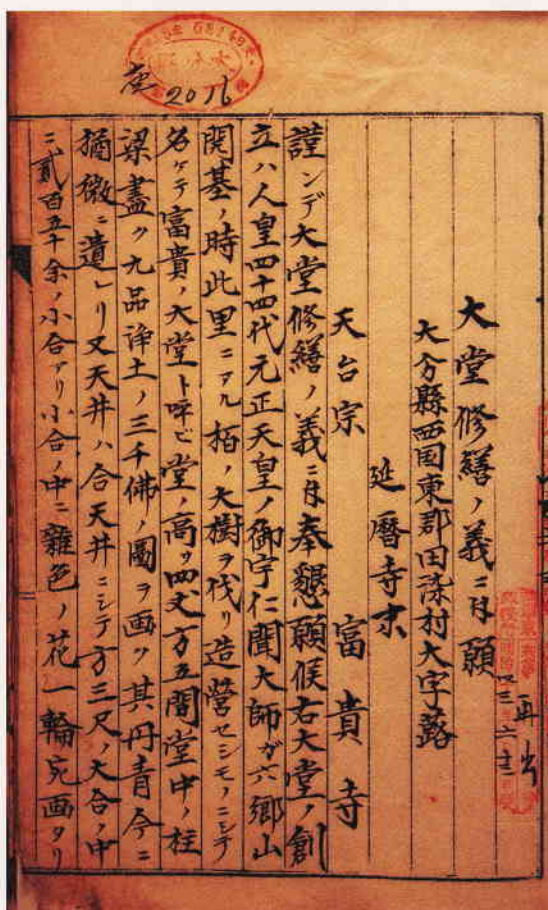 庶 2016
再出
大堂修繕ノ義ニ付願
大分縣西国東郡田染村大字蕗
延暦寺末
天台宗 富貴寺
謹ンデ大堂修繕ノ義ニ付奉懇願候右大堂ノ創
立ハ人皇四十四代元正天皇ノ御宇仁聞大師ガ六郷山
開基ノ時此里ニアル栢ノ大樹ヲ伐リ造營セシモノニシテ
名ケテ富貴ノ大堂ト呼ビ堂ノ高サ四丈方五間堂中ノ柱
梁盡ク九品浄土ノ三千佛ノ圖ヲ画ク其丹青今ニ
猶微ニ遺レリ又天井ハ合天井ニシテ方三尺ノ大合ノ中
ニ貳百五十余ノ小合アリ小合ノ中ニ雜色ノ花一輪宛画タリ